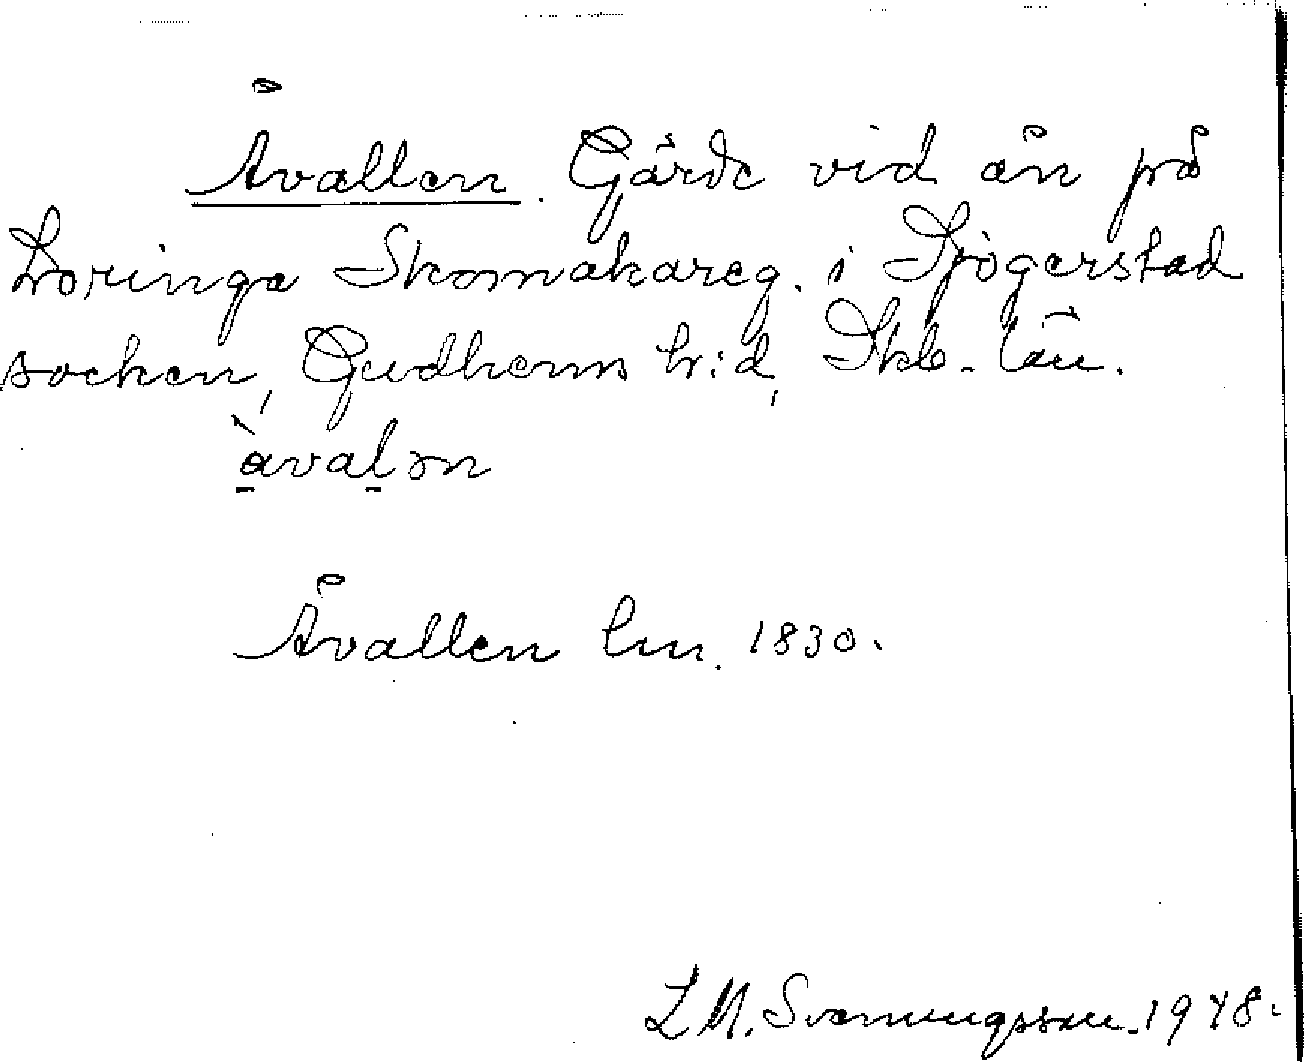 Åvallen. Gärde vid ån på
Loringa Skomakareg. i Sjögerstad
socken, Gudhems h:d, Skb. län.
åvalən
Åvallen lm. 1830.
L M. Svenungsson. 1948.